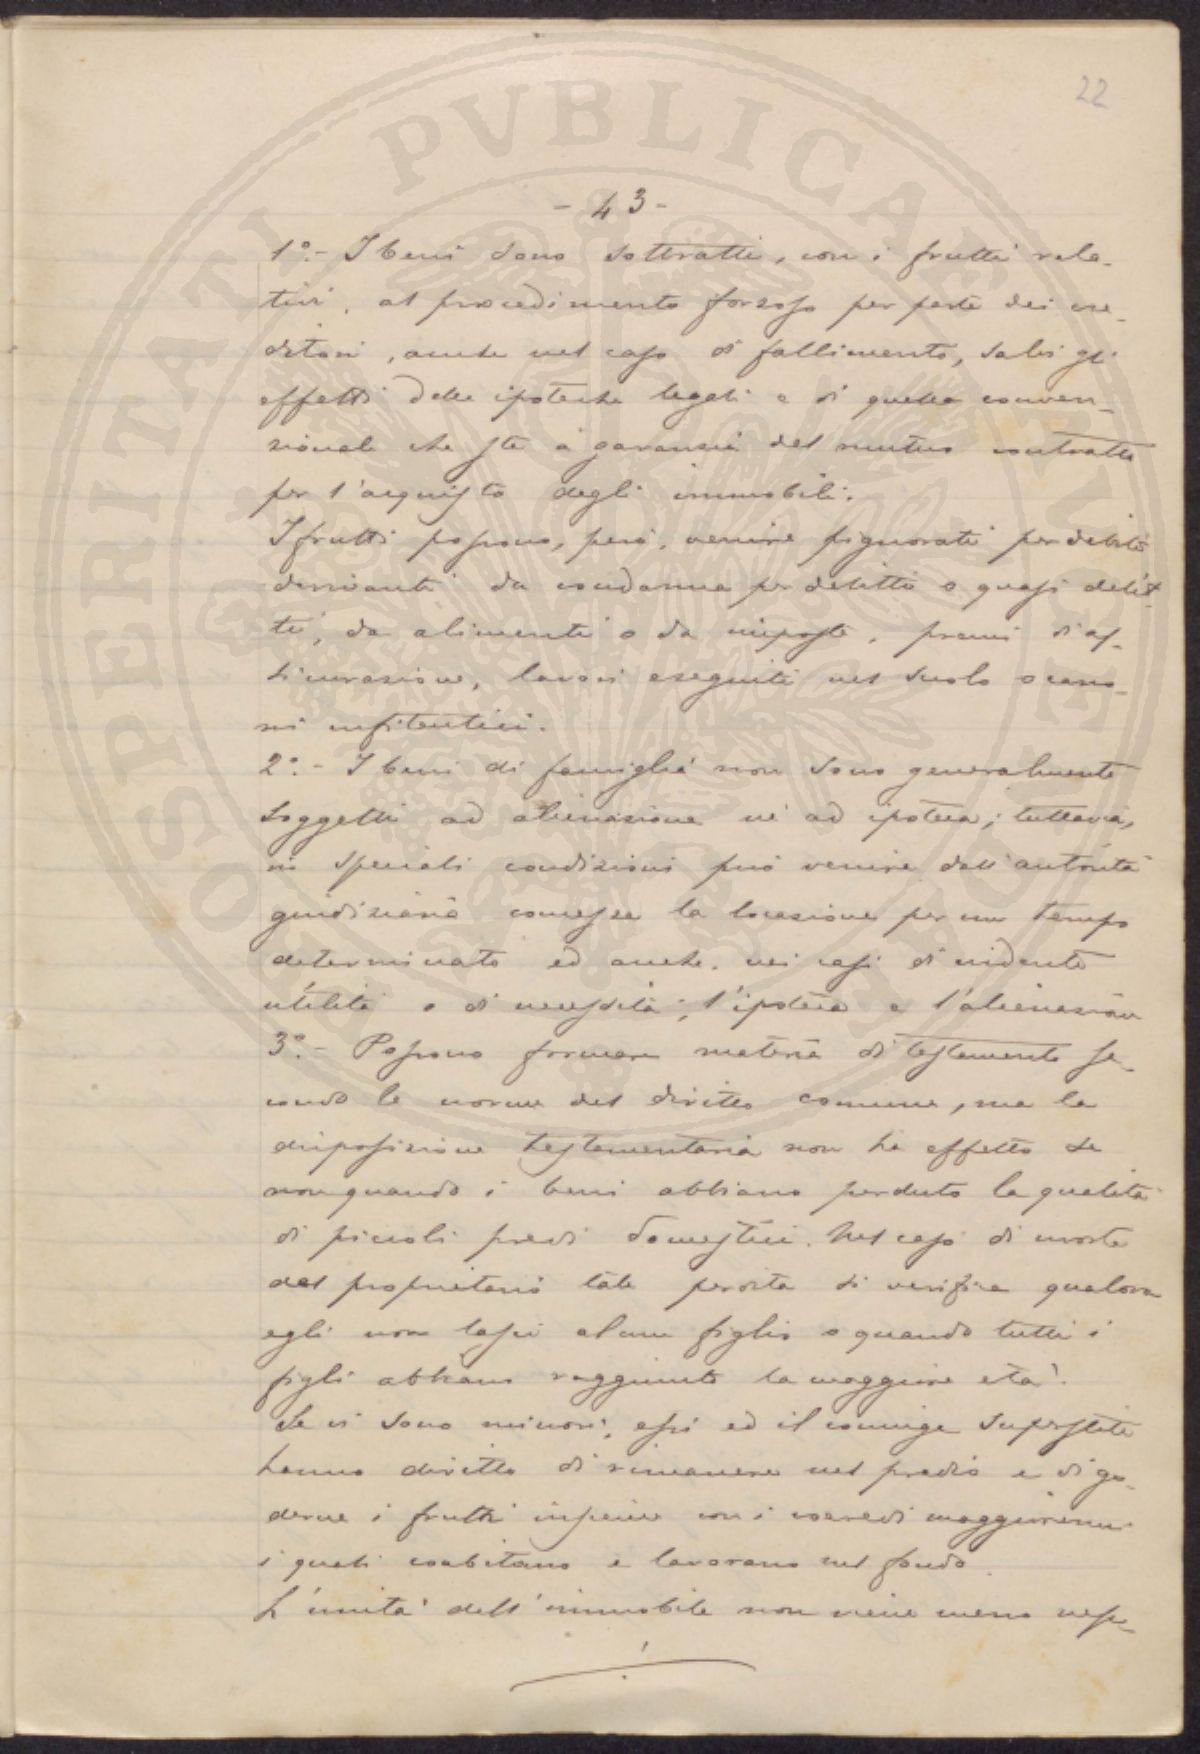 22
- 43 -
1°.- I beni sono sottratti, con i frutti rela-
tivi, al procedimento forzoso per parte dei cre-
ditori, anche nel caso di fallimento, salvi gli
effetti delle ipoteche legali e di quella conven-
zionale che sta a garanzia del mutuo contratto
per l'acquisto degli immobili.
I frutti possono, però, venire pignorati per debiti
derivanti da condanna per delitti o quasi delit-
ti, da alimenti o da imposte, premi di as-
sicurazione, lavori eseguiti nel suolo o cano-
ni enfiteutici.
2°.- I beni di famiglia non sono generalmente
soggetti ad alienazione nè ad ipoteca; tuttavia,
in speciali condizioni può venire dall'autorità
giudiziaria concessa la locazione per un tempo
determinato ed anche, nei casi di evidente
utilità o di necessità, l'ipoteca e l'alienazione
3°.- Possono formare materia di testamento se-
condo le norme del diritto comune, ma la
disposizione testamentaria non ha effetto se
non quando i beni abbiano perduto la qualità
di piccoli predi domestici. Nel caso di morte
del proprietario tale perdita si verifica qualora
egli non lasci alcun figlio o quando tutti i
figli abbiano raggiunto la maggiore età.
Se vi sono minori, essi ed il coniuge superstite
hanno diritto di rimanere nel predio e di go-
derne i frutti insieme con i coeredi maggiorenni
i quali coabitano e lavorano nel fondo.
L'unità dell'immobile non viene meno nep-
./.
PROSPERITATI PVBLICAE AVGENDAE